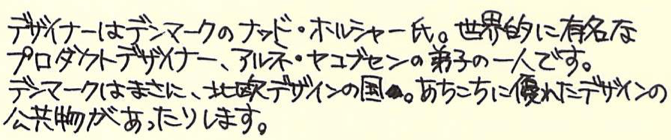 デザイナーはデンマークのナッド・ホルシャー氏。世界的に有名な
プロダクトデザイナー、アルネ・ヤコブセンの弟子の一人です。
デンマークはまさに、北欧デザインの国。あちこちに優れたデザインの
公共物があったりします。